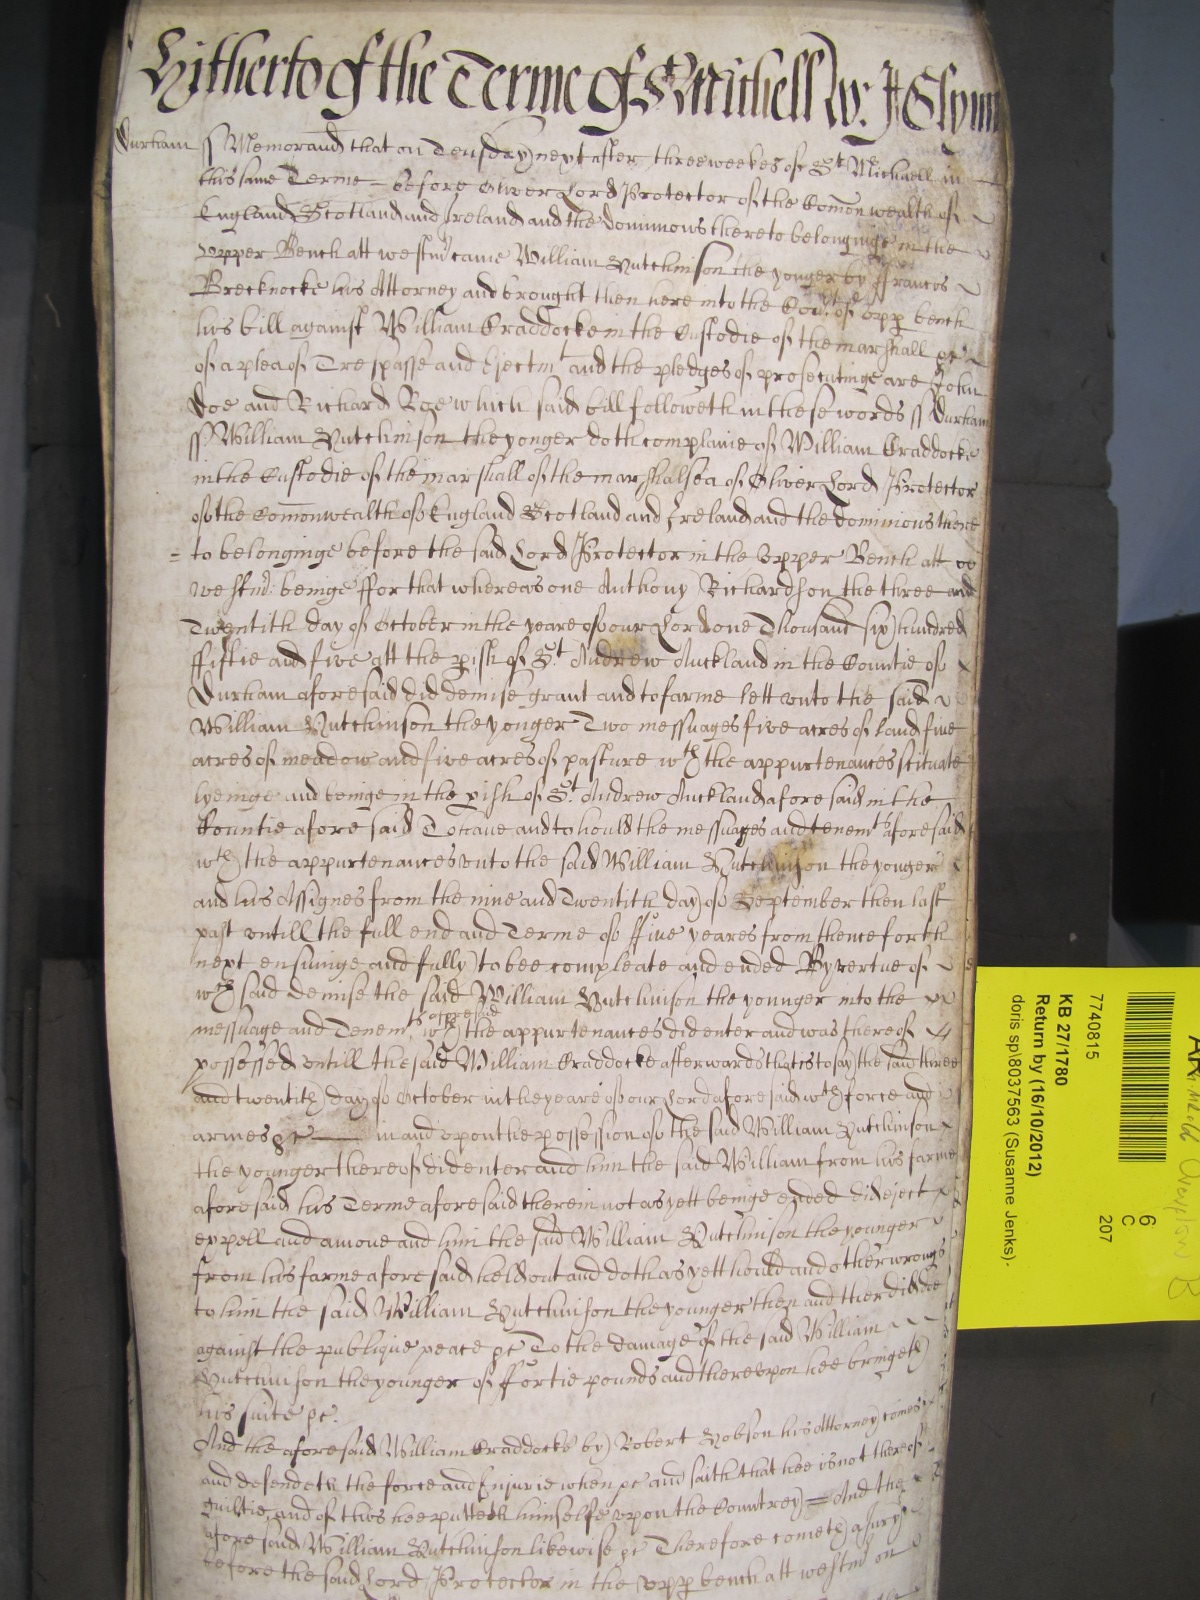 Hitherto of the Terme of St Michell W: J Glynn
Durham ss Memorand that on Teusday next after three weekes of St Michaell in
this same Terme before Oliver Lord Protector of the Comon wealth of
England Scotland and Ireland and the dominions thereto belonginge in the
vpper Bench att westmr came William Hutchinson the yonger by ffrancis
Brecknocke his Attorney and brought then here into the Court of vpp bench
his bill against William Craddocke in the Custodie of the marshall &c
of a plea of Trespasse and Ejectmt and the pledges of prosecutinge are John
Doe and Richard Roe which said bill followeth in these words ss Durham
ss William Hutchinson the yonger doth complaine of William Craddocke
in the Custodie of the marshall of the marshalsea of Oliver Lord Protector
of the Comonwealth of England Scotland and Ireland and the dominions there
= to belonginge before the said Lord Protector in the vpper Bench att we
westmr: beinge ffor that whereas one Anthony Richardson the three and
Twentith day of October in the yeare of our Lord one Thousand six hundred
ffiftie and five att the pish of St Andrew Auckland in the Countie of
Durham aforesaid did demise grant and to farme lett vnto the said
William Hutchinson the yonger Two messuages five acres of land five
acres of meadow and five acres of pasture wth the appurtenances scituate
lyeinge and beinge in the pish of St Andrew Auckland afore said in the
Countie afore said To haue and to hould the messuages and tenemts aforesaid
wth the appurtenances vnto the said William Hutchinson the yonger
and his Assignes from the nine and Twentith day of September then last
past vntill the full end and Terme of ffiue yeares from thence forth
next ensuinge and fully to bee compleate and ended By vertue of
wch said demise the said William Hutchinson the younger into the
messuage and Tenemts aforesaid wth the appurtenances did enter and was thereof
possessed vntill the said William Craddocke afterwards that is to say the said three
and twentith day of October in the yeare of our Lord afore said wth force and
armes &c in and vpon the possession of the said William Hutchinson
the younger thereof did enter and him the said William from his farme
afore said his Terme aforesaid therein not as yett beinge ended did eject
expell and amove and him the said William Hutchinson the younger
from his farme afore said held out and doth as yett hould and other wrongs
to him the said William Hutchinson the younger then and ther did doe
against the publique peace &c To the damage of the said William
Hutchinson the younger of ffortie pounds and therevpon hee bringeth
his suite &c.
And the aforesaid William Craddocke by Robert Hobson his Attorney comes
and defendeth the force and Injurie when &c and saith that hee is not thereof
guiltie and of this hee putteth himselfe vpon the Countrey = And the
afore said William Hutchinson likewise &c Therefore cometh a Jury
before the said Lord Protector in the vpp bench att westmr on
7740815
KB 27/1780
Return by (16/10/2012)
doris sp\8037563 (Susanne Jenks).
6
C
207